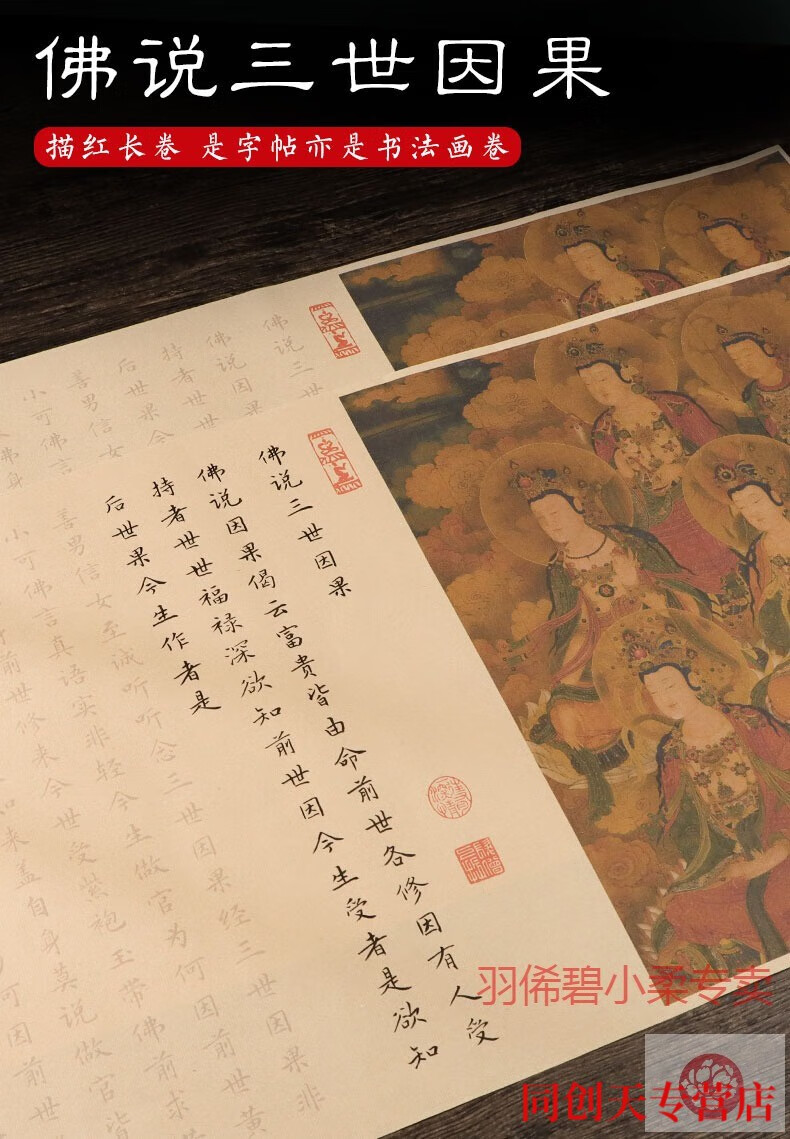 佛说三世因果
描红长卷 是字帖亦是书法画卷
佛说三世
佛说因果
持者世世
后世果今
善男信女
小可佛
佛说三世因果
佛说因果偈云富贵皆由命前世各修因有人受
持者世世福禄深欲知前世因今生受者是欲知
后世果今生作者是
善男信女至诚听听念三世因果经三世因果非
小可佛言真语实非轻今生做官为何因前世黄
前世修来今世受紫袍玉带佛前求
来盖自身莫说做官皆
可因前世
羽俙碧小柔专卖
同创天专营店